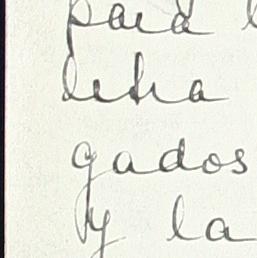 para
letra
gados
y la